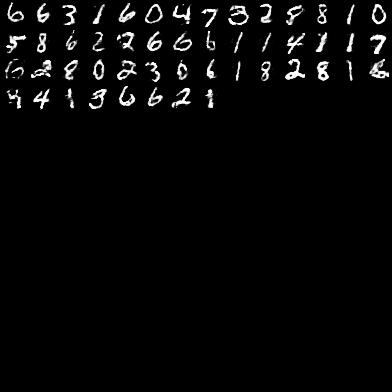 6 6 3 1 6 0 4 7 3 2 8 8 1 0
5 8 6 2 2 6 6 6 1 1 4 1 1 7
6 2 8 0 2 3 0 6 1 8 2 8 1 6
4 4 1 3 6 6 2 1